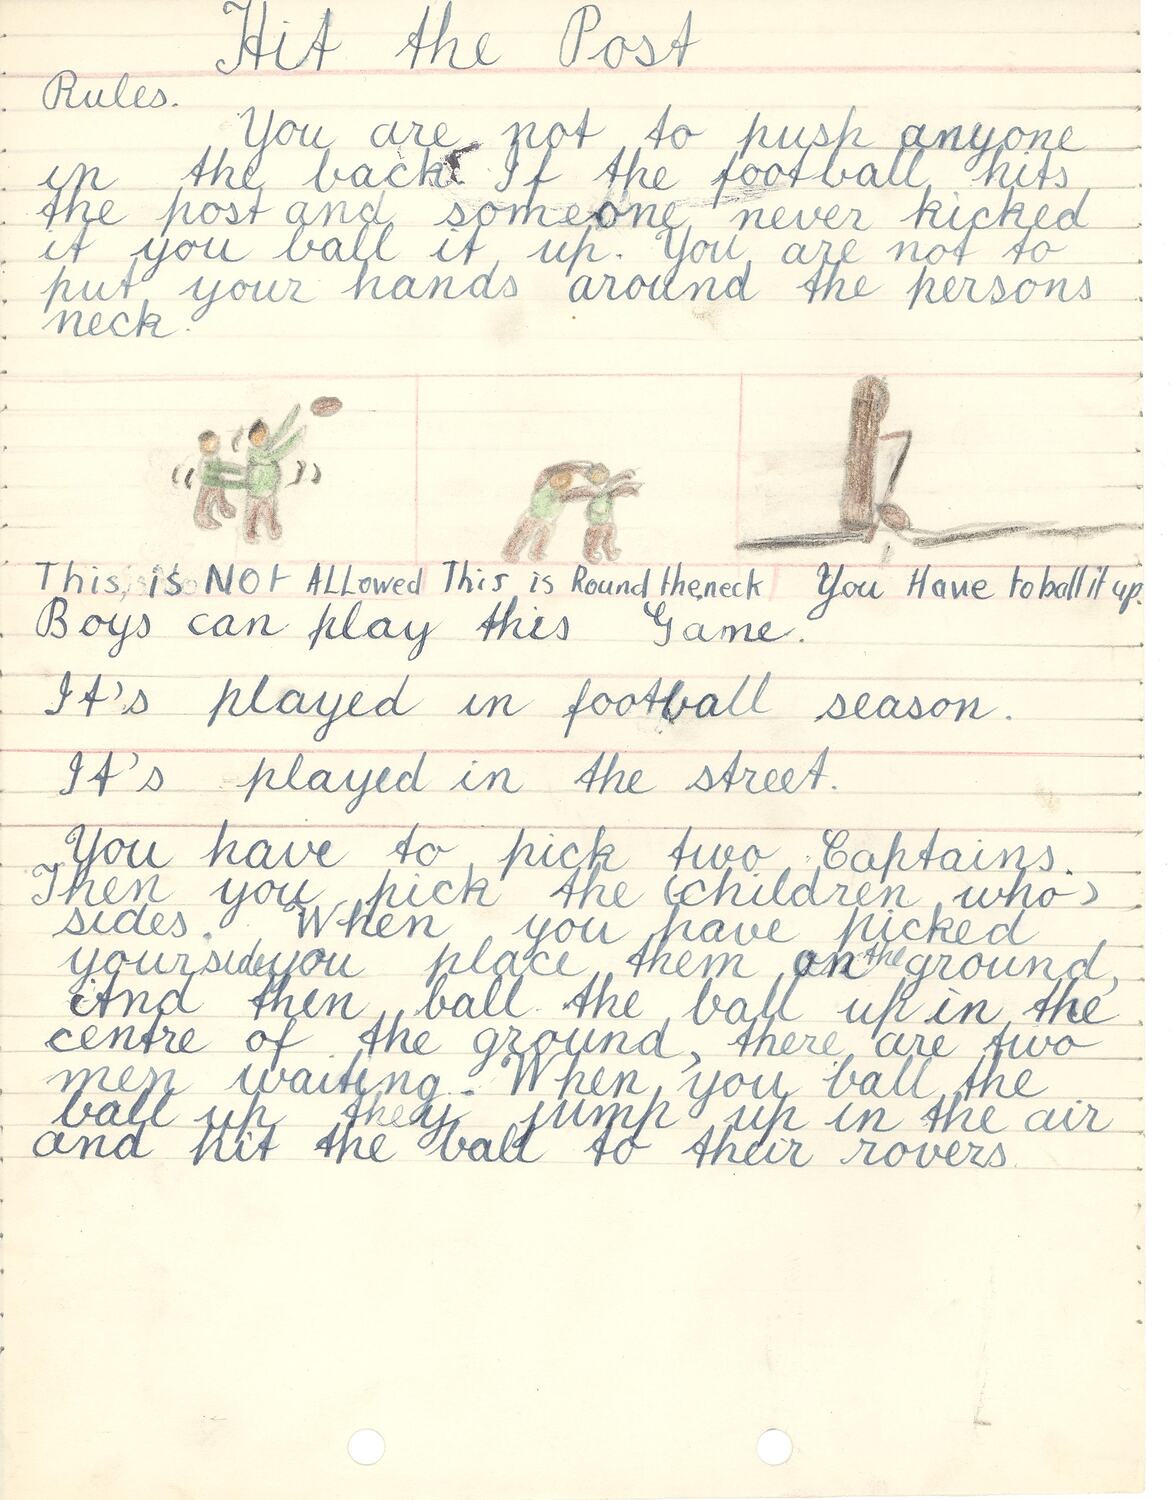 Hit the Post
Rules.
You are not to push anyone
in the back. If the football hits
the post and someone never kicked
it you ball it up. You are not to
put your hands around the persons
neck.
This is NOT ALLowed This is Round the neck You Have to ball it up.
Boys can play this Game.
It's played in football season.
It's played in the street.
You have to pick two Captains.
Then you pick the (children who)
sides. When you have picked
your side you place them on the ground,
And then ball the ball up in the
centre of the ground, there are two
men waiting. When you ball the
ball up they jump up in the air
and hit the ball to their rovers